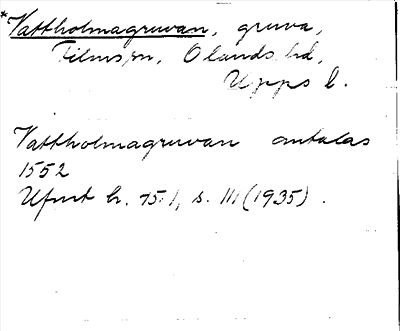 *Vattholmagruvan, gruva,
Films sn, Olands hd,
Upps l.
Vattholmagruvan omtalas
1552
Ufmt h. 45:1, s. 111 (1935).